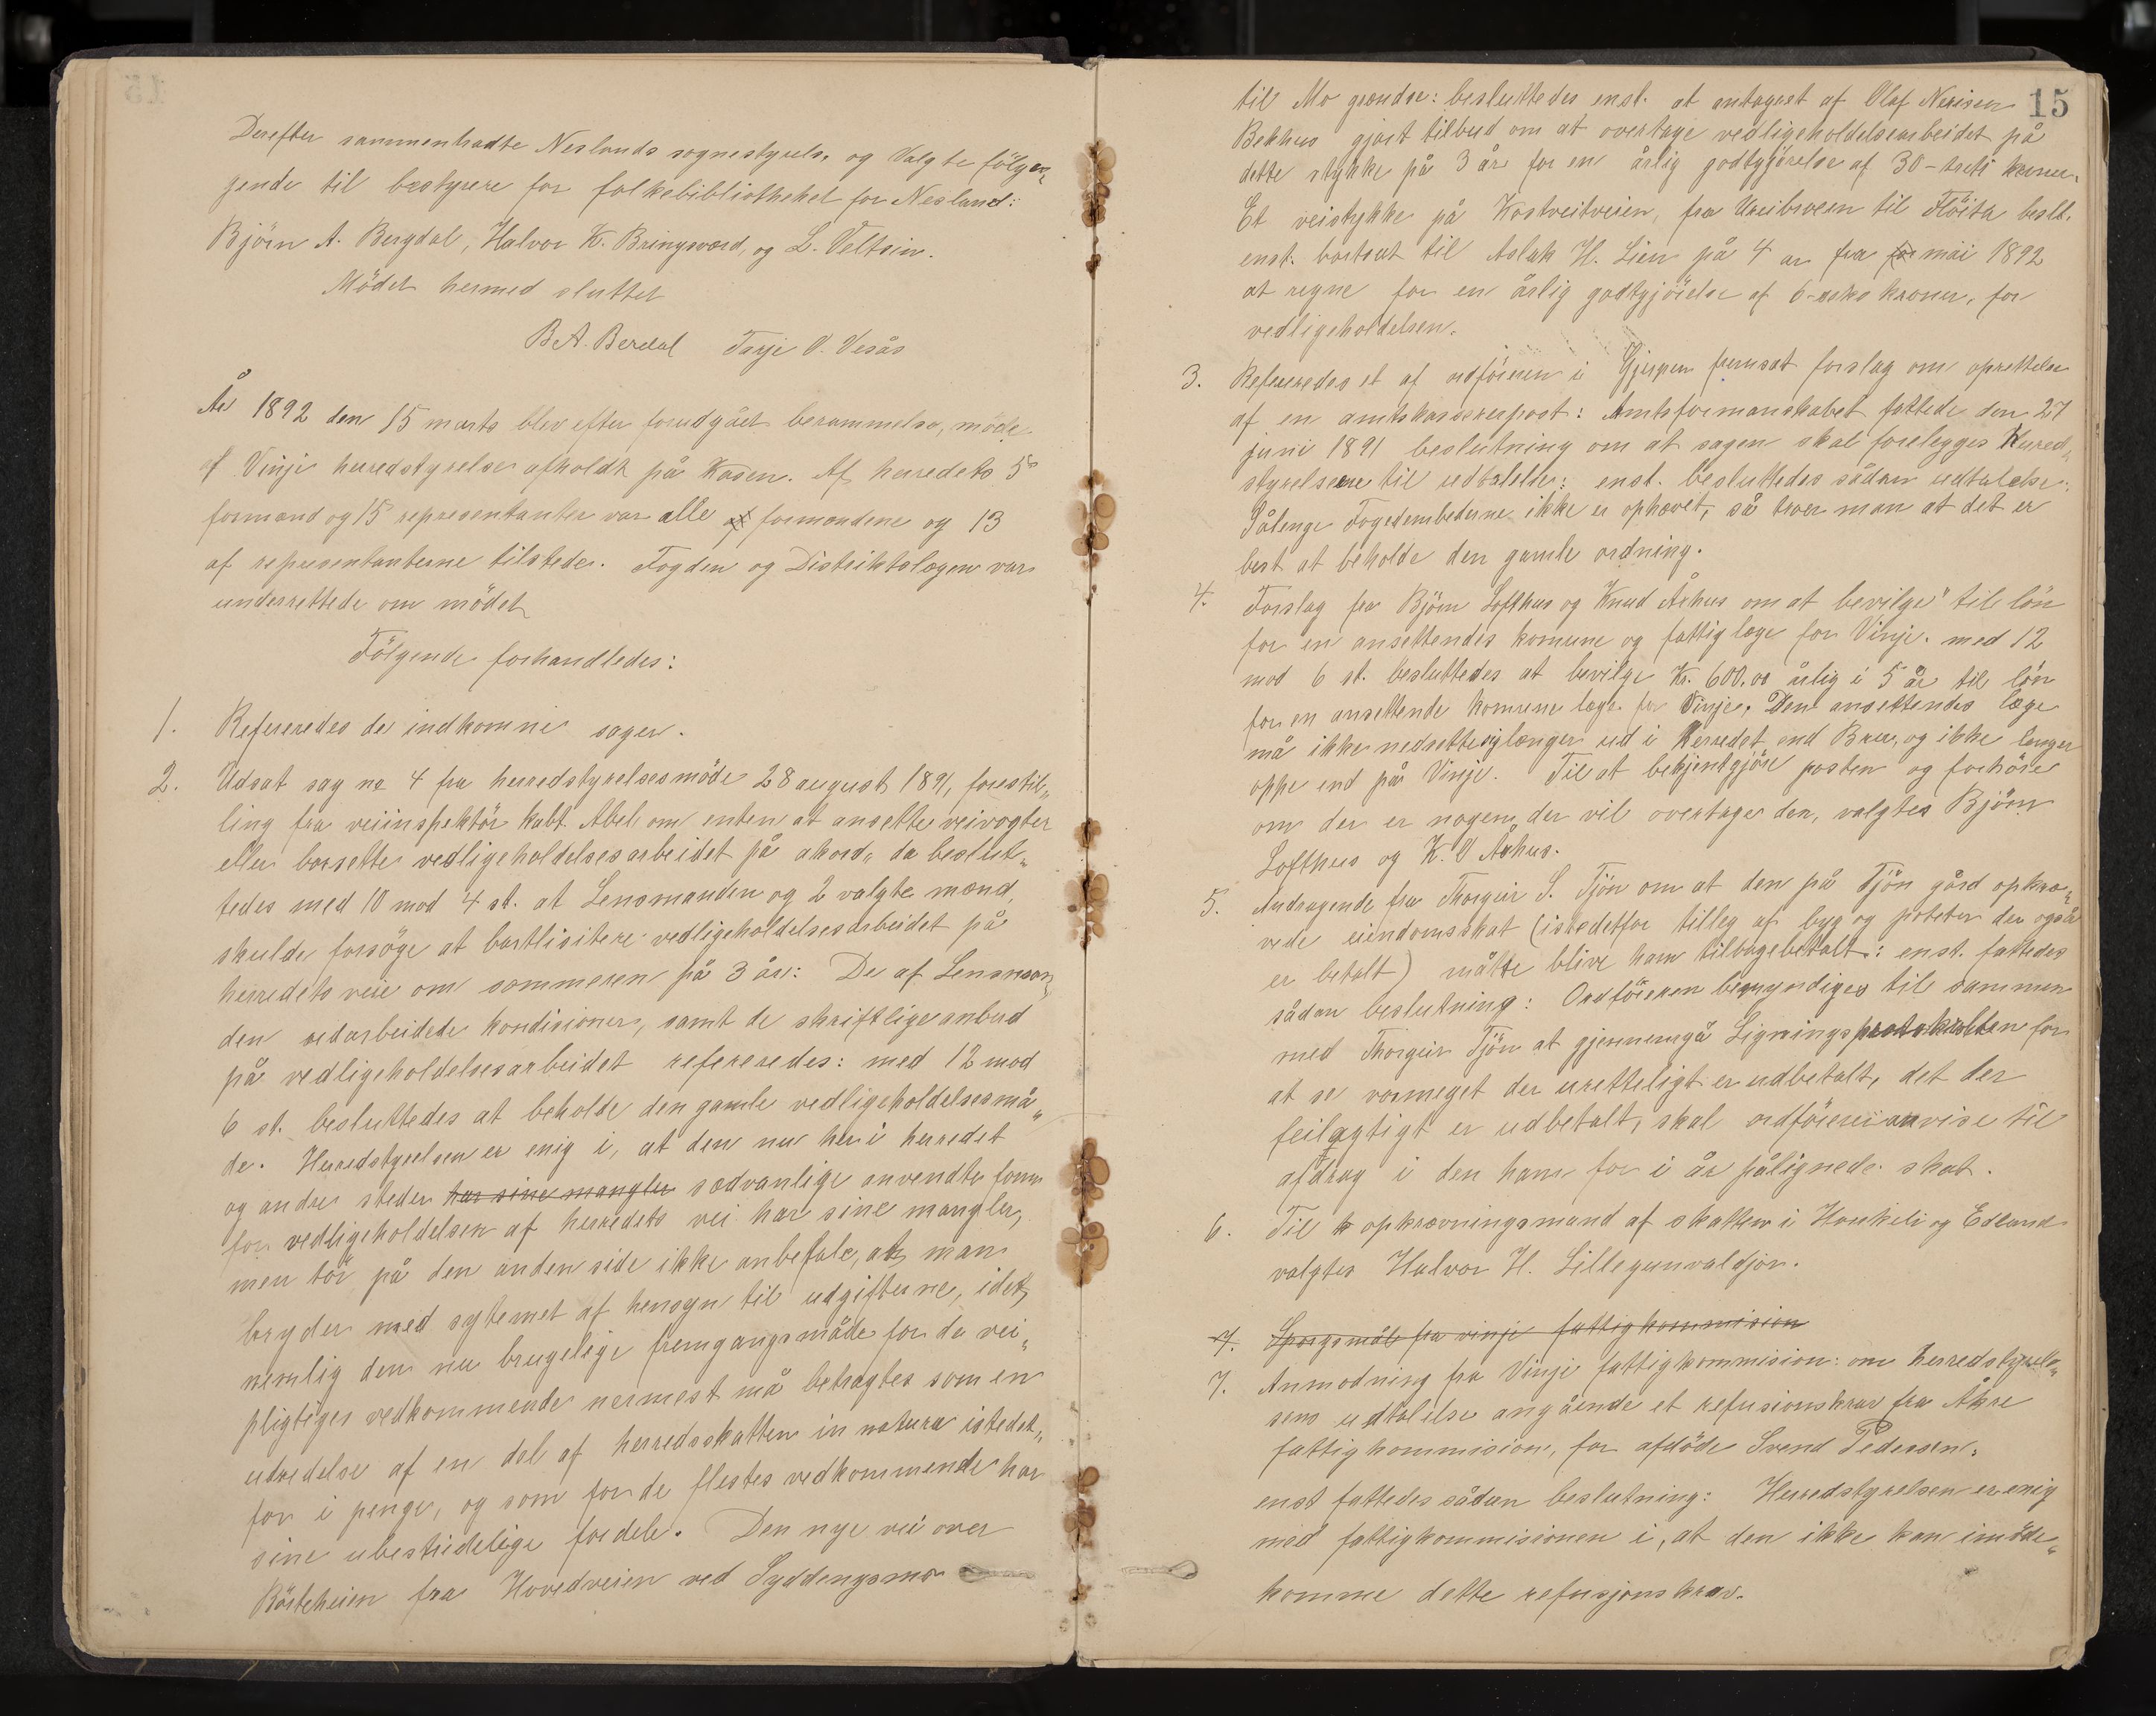 Derefter sammentradte Neslands sognestyrelse og Valgte fölgen„
gende til bestyrere for folkebibliothehet for Nesland:
Björn A. Bergdal, Halvor K. Bringsværd, og L. Veltsin.
Mödet hermed sluttet
B A. Berdal Tarje V. Vesås
År 1892 den 15 marts blev efter forudgået berammelse, möde
af Vinje heredstyrelse afholdt på Kåsen. Af herredets 5
formænd og 15 representanter var alle af formændene og 13
af representanterne tilstede. Fogden og Distriktslægen var
underrettede om mödet
Fölgende forhandledes:
1. Refereredes de indkomne sager.
2. Udsat sag no 4 fra herredstyrelsesmöde 28 august 1891, forestil„
ling fra veiinspektör kabt. Abel om enten at ansette veivogter
eller borsette vedligeholdelsesarbeidet på akord„ da beslut„
tedes med 10 mod 4 st. at Lensmanden og 2 valgte mænd,
skulde forsöge at bortlisitere vedligeholdelsesarbeidet på
herredets veie om sommeren på 3 år: De af Lensman„
den udarbeidede kondisioner, samt de skriftlige anbud
på vedligeholdelsesarbeidet refereredes: med 12 mod
6 st. besluttedes at beholde den gamle vedligeholdelsesmå„
de. Herredstyrelsen er enig i, at den nu her i herredet
og andre steder har sine mangler sædvanlige anvendte form
for vedligeholdelsen af herredets vei har sine mangler,
men tör på den anden side ikke anbefale, at man
bryder med sytemet af hensyn til udgifterne, idet
nemlig den nu brugelige fremgangsmåde for de vei„
pligtiges vedkommende nærmest må betragtes som en
utredelse af en del af herredsskatten in natura istedet„
for i penge, og som for de flestes vedkommende har
sine ubestridelige fordele. Den nye vei over
Börteheien fra Hovedveien ved Syddengsmo
15
til Mo grændse: besluttedes enst. at antaget af Olaf Nerisen
Bekhus gjort tilbud om at overtage vedligeholdelsearbeidet på
dette stykke på 3 år for en årlig godtgjörelse af 30 - treti kroner.
Et veistykke på Kostveitveien, fra Ureibroen til Flöita beslt.
enst. bortsat til Aslak H. Lien på 4 ar fra for mai 1892
at regne for en årlig godtgjörelse af 6 - seks kroner, for
vedligeholdelsen.
3. Refereredes et af ordföreren i Gjerpen fremsat forslag om oprettelse
af en amtskassererpost: Amtsformanskabet fattede den 27
juni 1891 beslutning om at sagen skal forelegges Hered„
styrelserne til udtalelse: enst. besluttedes sådan udtalelse:
Sålenge Fogedembederne ikke er ophævet, så troer man at det er
best at beholde den gamle ordning.
4. Forslag fra Björn Lofthus og Knud Århus om at bevilge til lön
for en ansettendes komune og fattiglæge for Vinje. med 12
mod 6 st. besluttedes at bevilge Kr. 600.00 årlig i 5 år til lön
for en ansettende komune læge for Vinje. Den ansettendes læge
må ikke nedsette sig længer ud i Herredet end Bru, og ikke lenger
oppe end på Vinje. Til at bekjentgjöre posten og forhöre
om der er nogen der vil overtage den, valgtes Björn
Lofthus og K. O Århus.
5. Andragende fra Thorgeir S. Tjön om at den på Tjön gård opkræ„
vede eiendomsskat (istedetfor tilleg af byg og poteter der også
er betalt) måtte blive ham tilbagebetalt: enst. fattedes
sådan beslutning: Ordföreren bemyndiges til sammen
med Thorgeir Tjön at gjennemgå Ligningsprotokollen for
at se vormeget der uretteligt er udbetalt, det der
feilagtigt er udbetalt, skal ordföreren anvise til
afdrag i den ham for i år pålignede skat.
6. Til opkrævningsmand af skatten i Haukeli og Edland
valgtes Halvor H. Lillegunvaldjor.
7. Sporgsmål fra vinje fattigkommision
7. Anmodning fra Vinje fattigkommision: om herredstyrel„
sens udtalelse angående et refusionskrav fra Åkre
fattigkommision, for afdöde Svend Pedersen.
enst fattedes sådan beslutning: Herredstyrelsen er enig
med fattigkommisionen i, at den ikke kan imöde„
komme dette refusjonskrav.